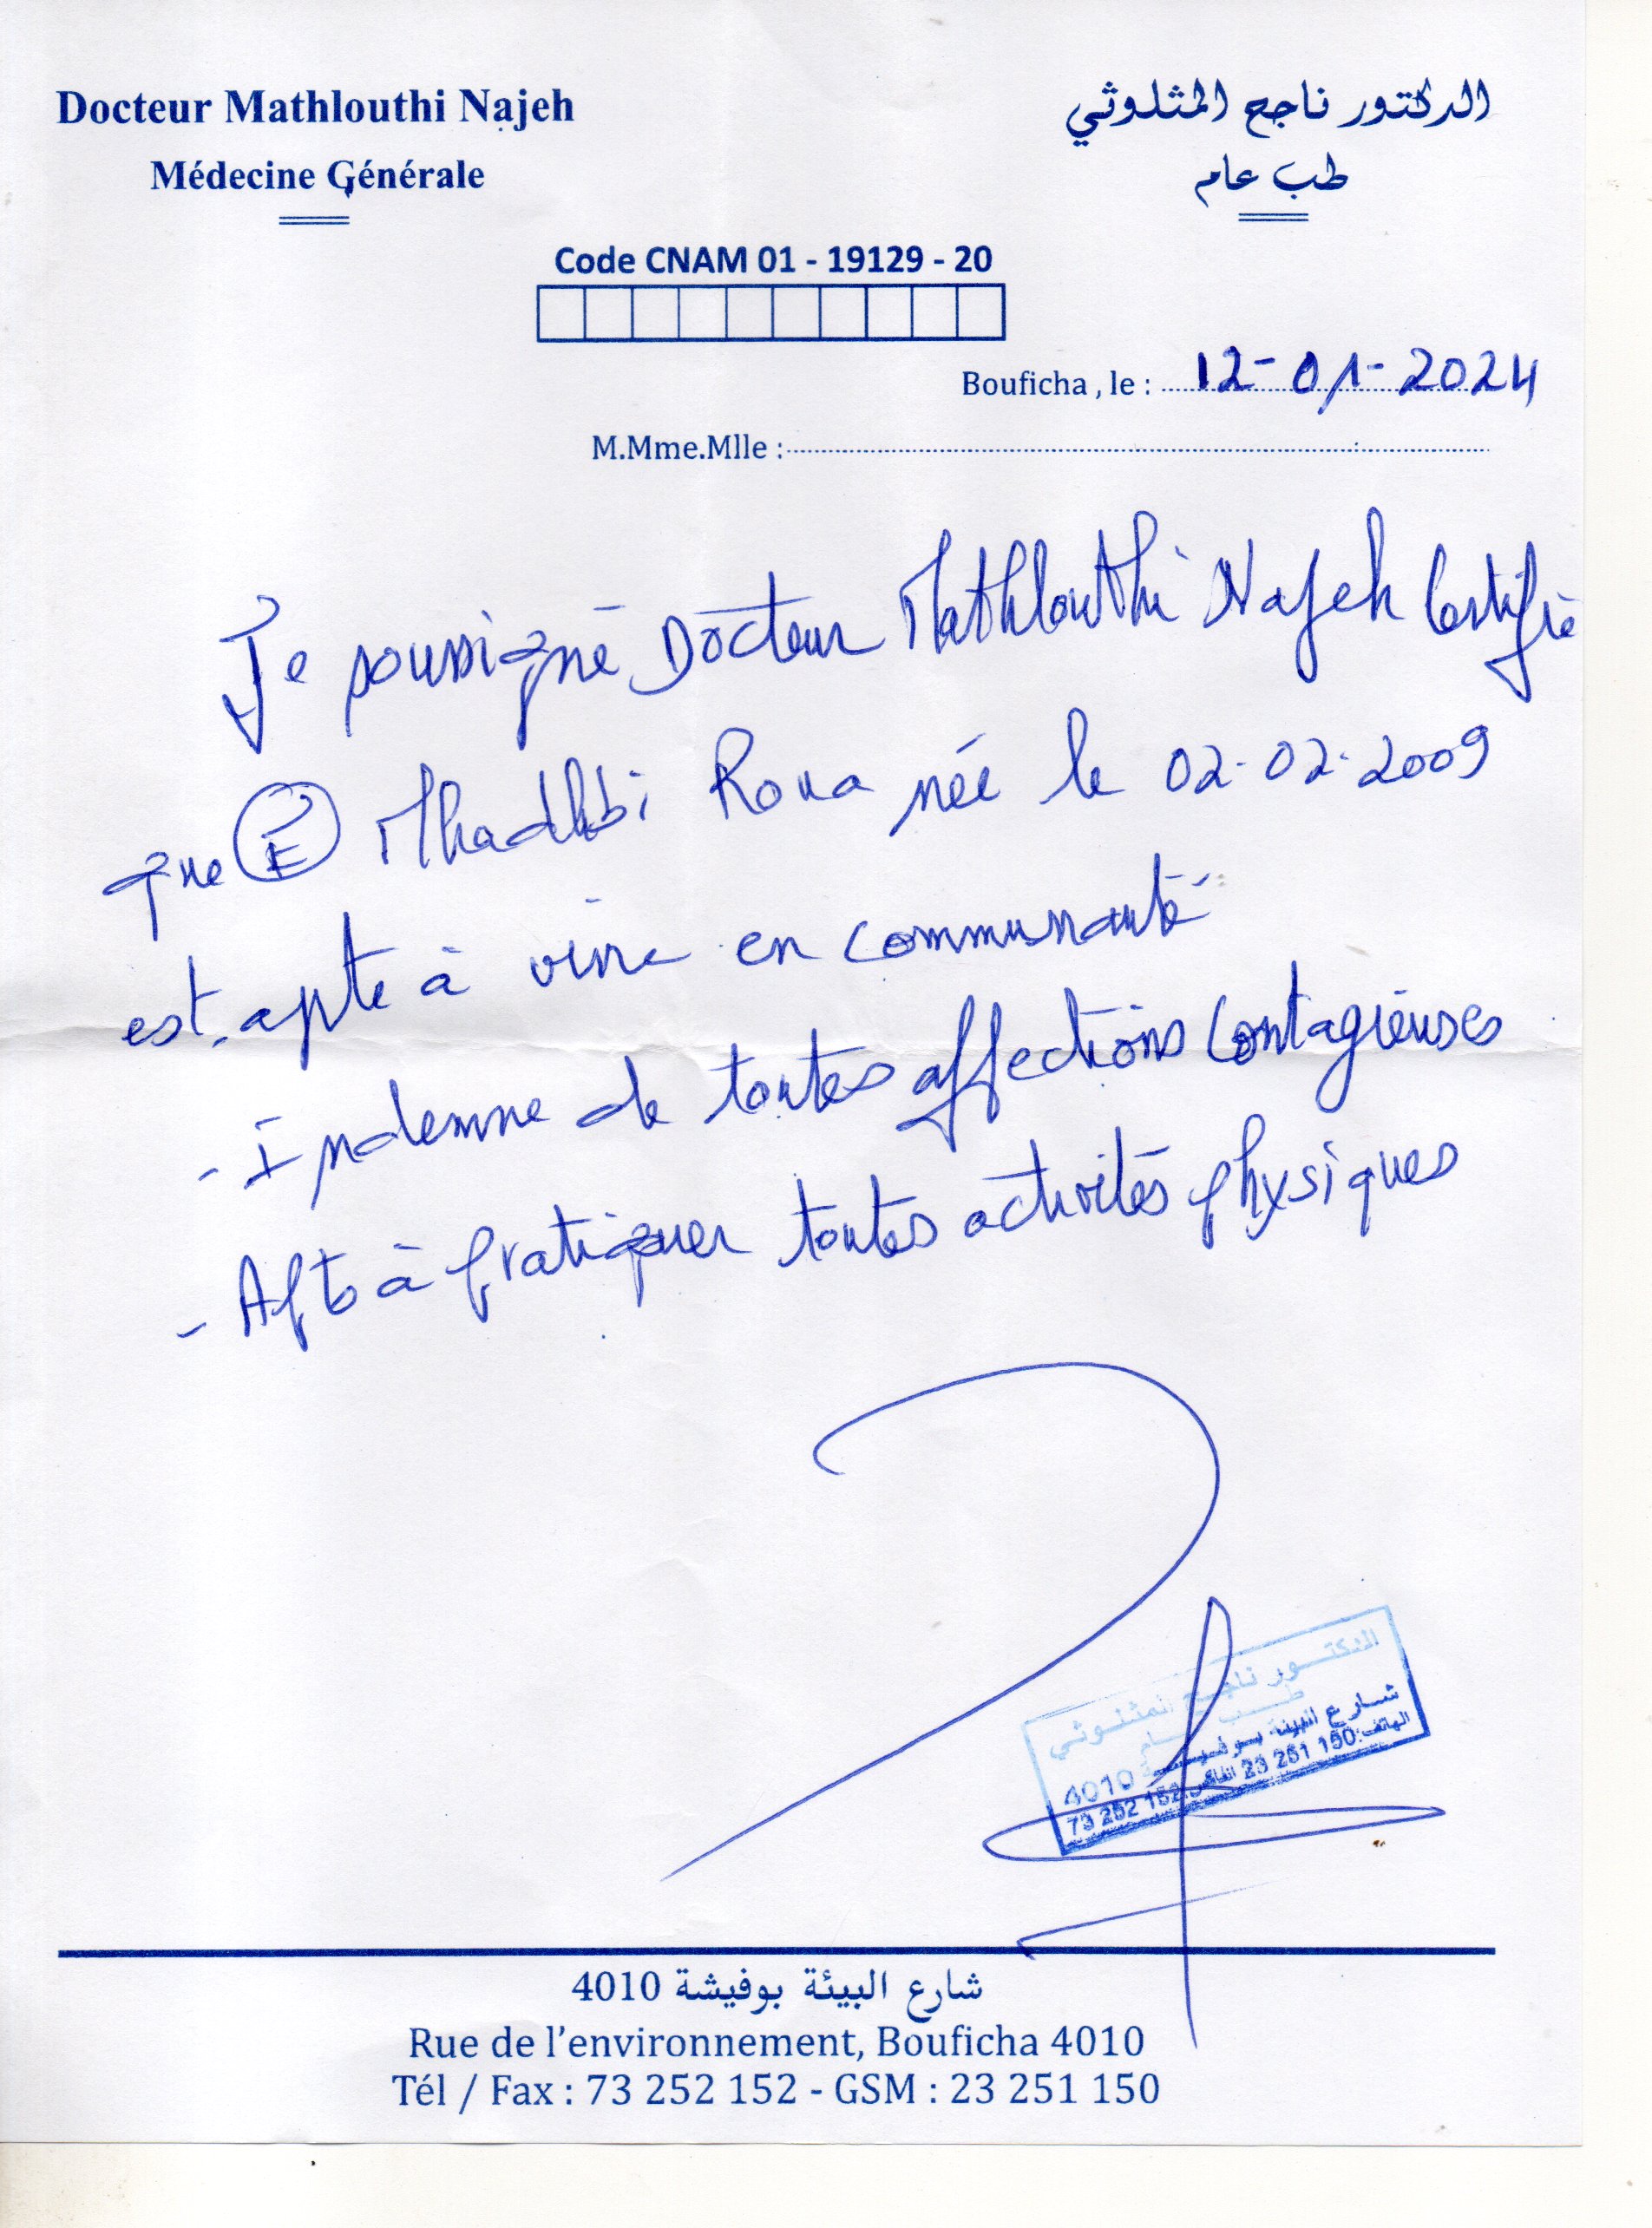 Docteur Mathlouthi Najeh
الدكتور ناجح المثلوثي
Médecine Générale
طب عام
Code CNAM 01 - 19129 - 20
Bouficha , le : 12-01-2024
M.Mme.Mlle :
Je soussigné Docteur Mathlouthi Najeh Certifie
que E Mhadhbi Roua née le 02-02-2009
est apte à vivre en communauté
- Indemne de toutes affections contagieuses
- Apte à pratiquer toutes activités physiques
الدكتور ناجح المثلوثي
طب عام
شارع البيئة بوفيشة 4010
الهاتف: 150 251 23 الفاكس: 152 252 73
شارع البيئة بوفيشة 4010
Rue de l'environnement, Bouficha 4010
Tél / Fax : 73 252 152 - GSM : 23 251 150